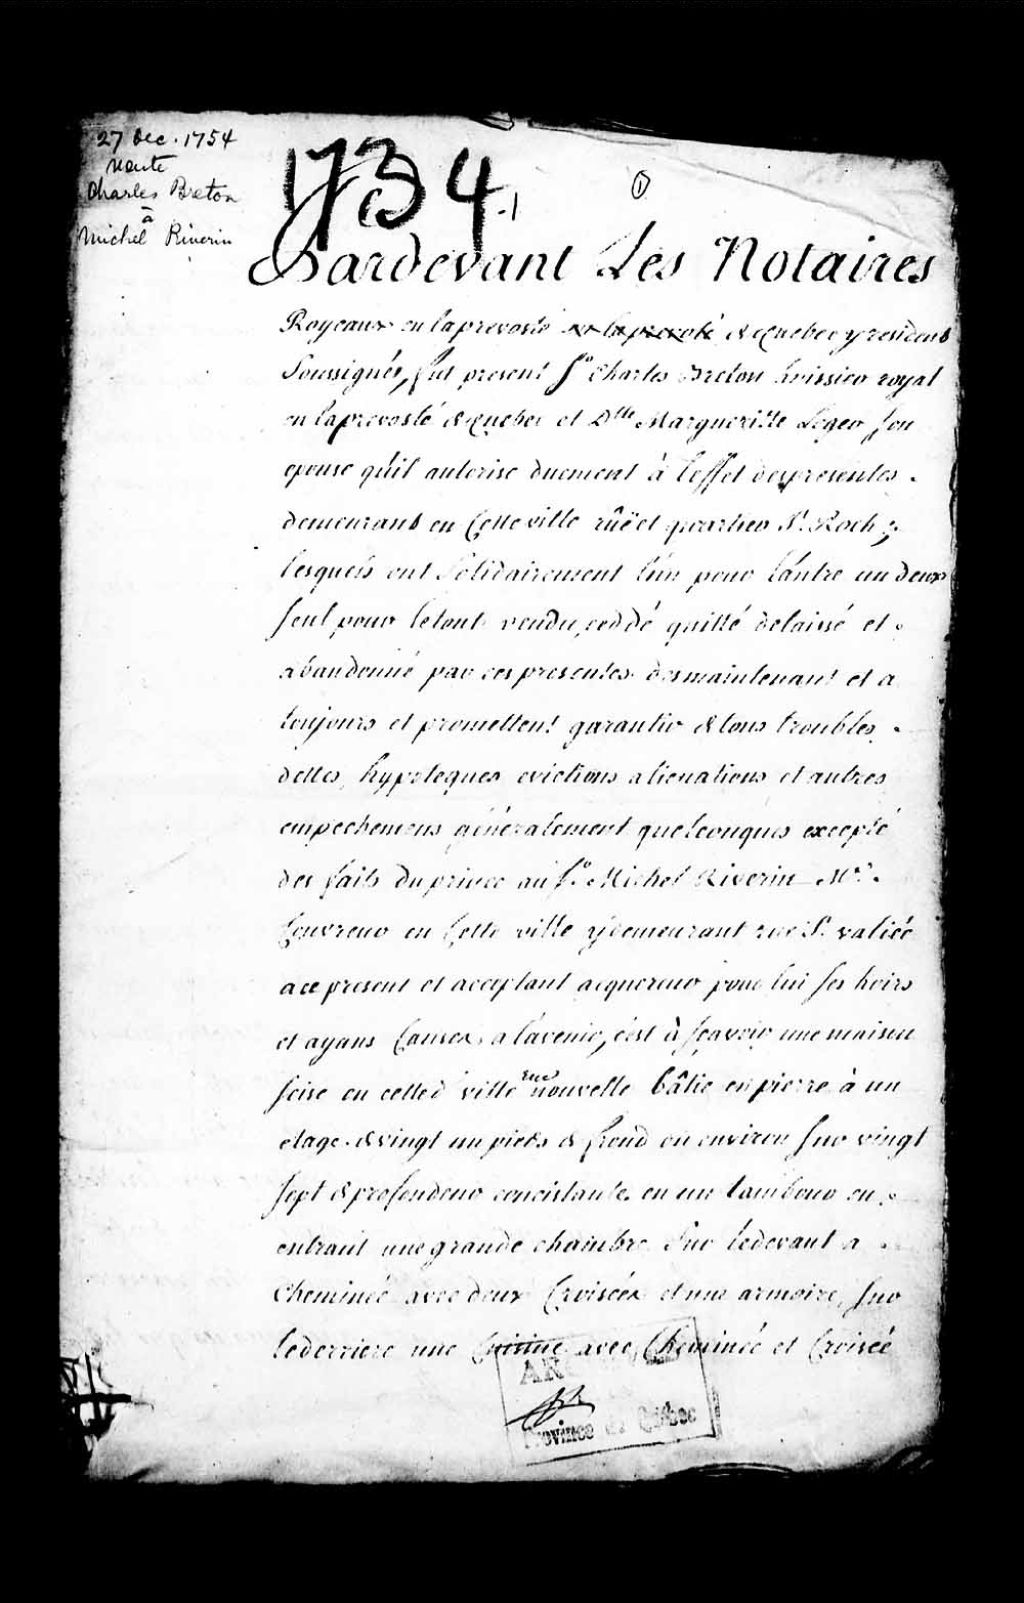 27 Dec. 1754
Vente
Charles Breton
à
Michel Riverin
1734.1
1
Pardevant Les Notaires
Royeaux en la prevosté en la prevoté de Quebec y residens
Soussignés, fut present Sr. Charles Breton huissier royal
en la prevosté de Quebec et Dlle Margueritte Leger son
epouse qu'il autorise duement à l'effet des presentes.
demeurans en cette ville rüe et quartier St. Roch;
lesquels ont solidairement l'un pour l'autre un deux
seul pour le tout vendu, ceddé quitté delaissé et
abandonné par ces presentes. des maintenant et a
toujours et promettent garantir de tous troubles.
dettes, hypoteques evictions alienations et autres
empechemens généralement quelconques excepté
des faits du prince au Sr. Michel Riverin Me.
Couvreur en cette ville y demeurant rue St. valiée
a ce present et acceptant acquereur pour lui ses hoirs
et ayans Causes, a l'avenir, c'est à sçavoir une maison
scise en cetted ville rue nouvelle bâtie en pierre à un
etage. de vingt un pieds de frond ou environ sur vingt
sept de profondeur concistante en un tambour en
entrant une grande chambre sur le devant a
Cheminée avec deux Croisées et une armoire, sur
le derriere une Cuisine avec Cheminée et Croisée
AR
Province de Québec